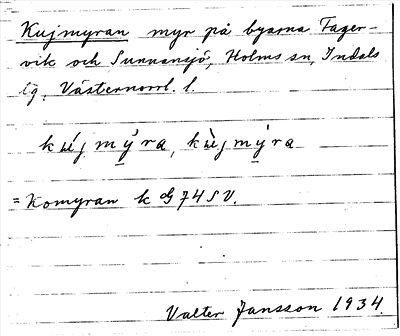 Kujmyran myr på byarna Fager-
vik och Sunnansjö, Holms sn, Indals
tg, Västernorrl. l.
kúj mỳra, kùj mýra
= Komyran k G 74 SV.
Valter Jansson 1934.